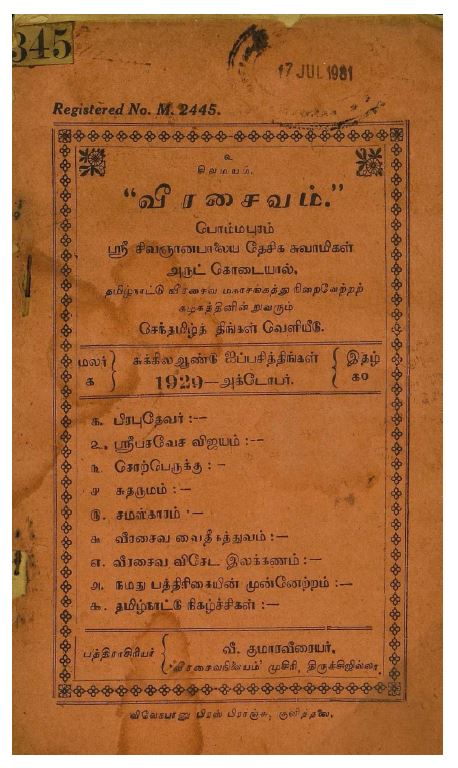 345
17 JUL 1981
Registered No. M. 2445.
உ
சிவமயம்.
“வீரசைவம்.”
பொம்மபுரம்
ஸ்ரீ சிவஞானபாலைய தேசிக சுவாமிகள்
அருட் கொடையால்,
தமிழ்நாட்டு வீரசைவ மகாசங்கத்து நிறைவேற்றற்
கழகத்தினின் றுவரும்
செந்தமிழ்த் திங்கள் வெளியீடு.
மலர் க சுக்கிலஆண்டு ஐப்பசித்திங்கள் இதழ் க0
1929—அக்டோபர்.
க. பிரபுதேவர் :—
உ. ஸ்ரீபரவேச விஜயம் :—
ந. சொற்பெருக்கு : –
ச சுதருமம் : —
ரு. சமஸ்காரம் '—
சு வீரசைவ வைதீகத்துவம் :—
எ. வீரசைவ விசேட இலக்கணம் : —
அ. நமது பத்திரிகையின் முன்னேற்றம் :—
கூ. தமிழ்நாட்டு நிகழ்ச்சிகள் :—
பத்திராசிரியர் வீ. குமாரவீரையர்.
முசிரி, திருச்சிஜில்லா.
பிரஸ் பிராஞ்சு, குளித்தலை.